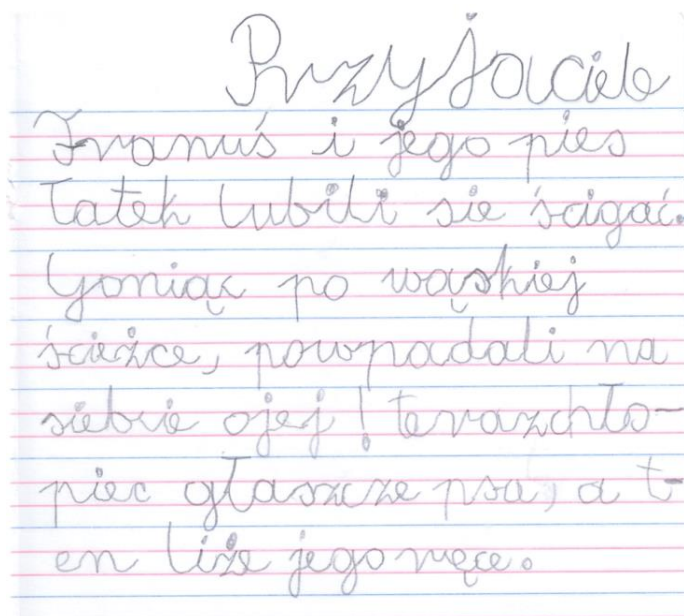 Przyjaciele
Franuś i jego pies
Łatek lubili sie ścigać.
Goniąc po wąskiej
ścieżce, powpadali na
siebie ojej! terazchło-
piec głaszcze psa, a t-
en liże jego ręce.